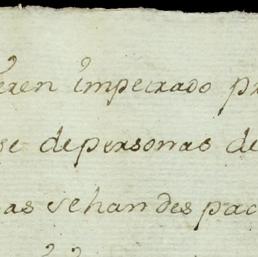 eren impetrado pr
se depersonas de
as sehan despac